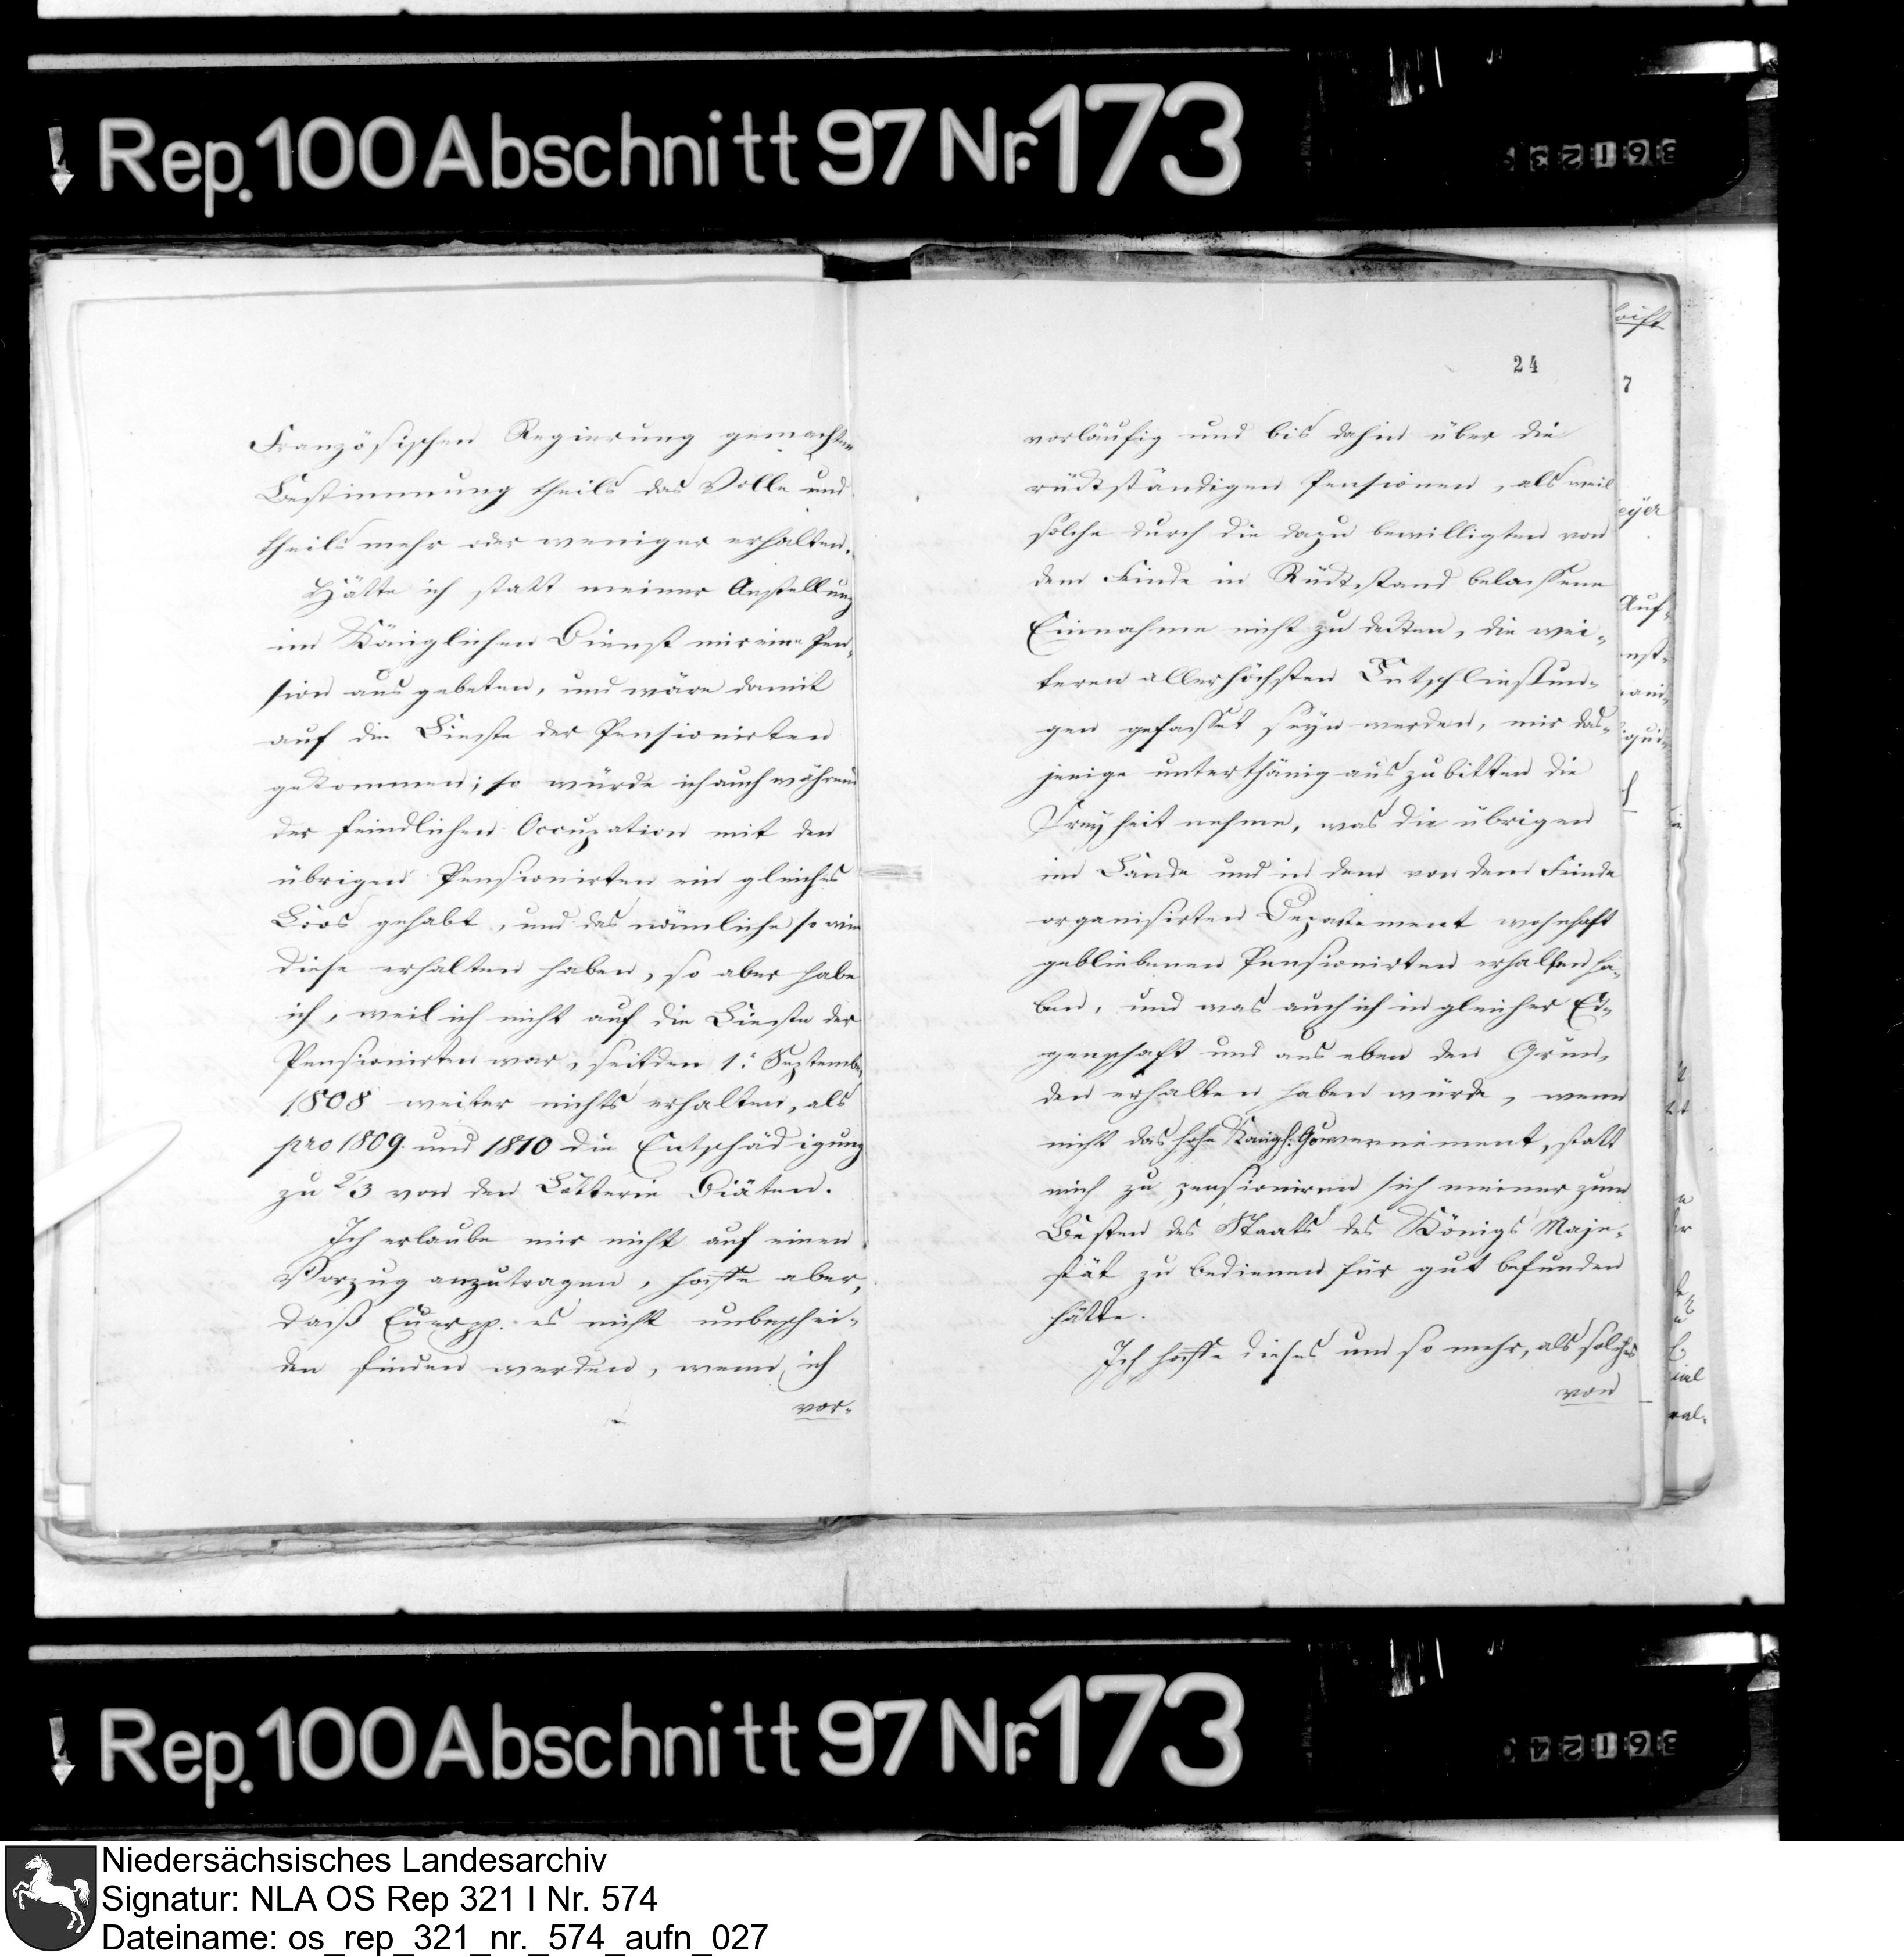 Rep. 100 Abschnitt 97 Nr. 173
Französischen Regierung gemachten
Bestimmung theils das Volle und
theils mehr oder weniger erhalten.
Hätte ich statt meiner Anstellung
im Königlichen Dienst mir eine Pen-
sion ausgebeten, und wäre damit
auf die Lieste der Pensionirten
gekommen; so würde ich auch während
der feindlichen Occupation mit den
übrigen Pensionirten ein gleiches
Loos gehabt, und das nämliche so wie
diese erhalten haben, so aber habe
ich, weil ich nicht auf die Lieste der
Pensionirten war, seit den 1: September
1808 weiter nichts erhalten, als
pro 1809. und 1810 die Entschädigung
zu 2/3 von den Lotterie Diäten.
Ich erlaube mir nicht auf einen
Vorzug anzutragen, hoffe aber,
daß Euer pp. es nicht unbeschei-
den finden werden, wenn ich
vor-
24
vorläufig und bis dahin über die
rückständigen Pensionen, als weil
solche durch die dazu bewilligten von
dem Feinde in Rückstand belassene
Einnahme nicht zu decken, die wei-
teren allerhöchsten Entschließun-
gen gefasset seyn werden, mir das-
jenige unterthänig auszubitten die
Freyheit nehme, was die übrigen
im Lande und in dem von dem Feinde
organisirten Departement wohnhaft
gebliebenen Pensionirten erhalten ha-
ben, und was auch ich in gleicher Ei-
genschaft und aus eben den Grün-
den erhalten haben würde, wenn
nicht das hohe Königl: Gouvernement, statt
mich zu pensioniren sich meiner zum
Besten des Staats des Königs Maje-
stät zu bedienen für gut befunden
hätte.
Ich hoffe dieses um so mehr, als solches
von
Rep. 100 Abschnitt 97 Nr. 173
Niedersächsisches Landesarchiv
Signatur: NLA OS Rep 321 I Nr. 574
Dateiname: os_rep_321_nr._574_aufn_027